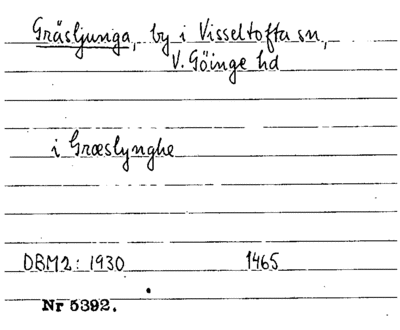 Gräsljunga, by i Visseltofta sn,
V. Göinge hd
i Græslynghe
DBM2: 1930 1465
Nr 5392.